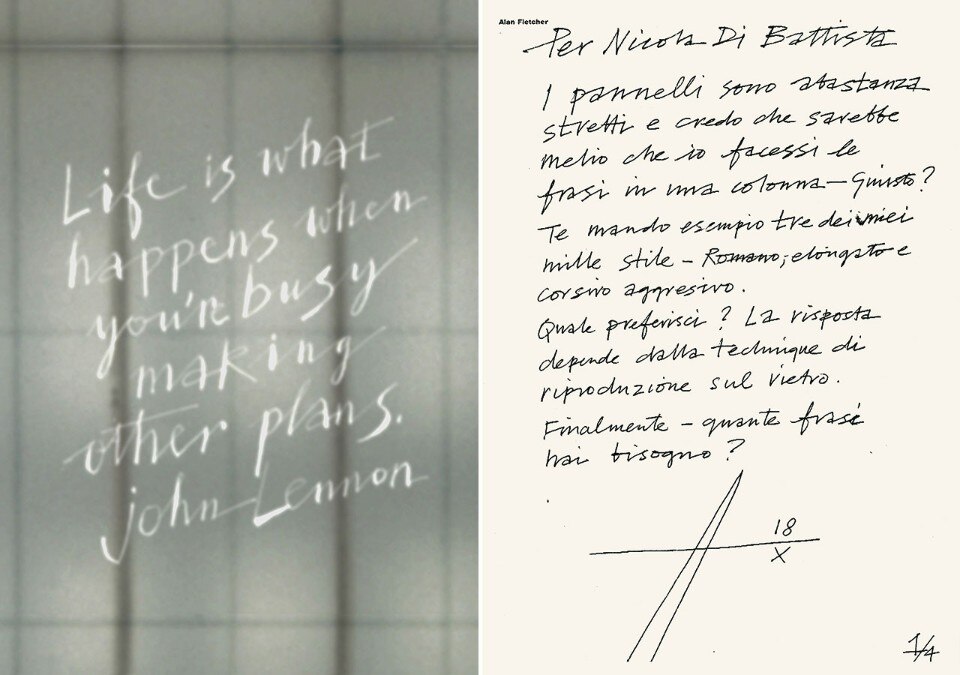 Life is what
happens when
you're busy
making
other plans.
john Lennon
Alan Fletcher
Per Nicola Di Battista
I pannelli sono abastanza
stretti e credo che sarebbe
melio che io facessi le
frasi in una colonna — Giusto?
Te mando esempio tre dei miei
mille stile – Romano, elongato e
corsivo aggresivo.
Quale preferisci? La risposta
depende dalla technique di
riproduzione sul vietro.
Finalmente – quante frasi
hai bisogno?
18
X
1/4